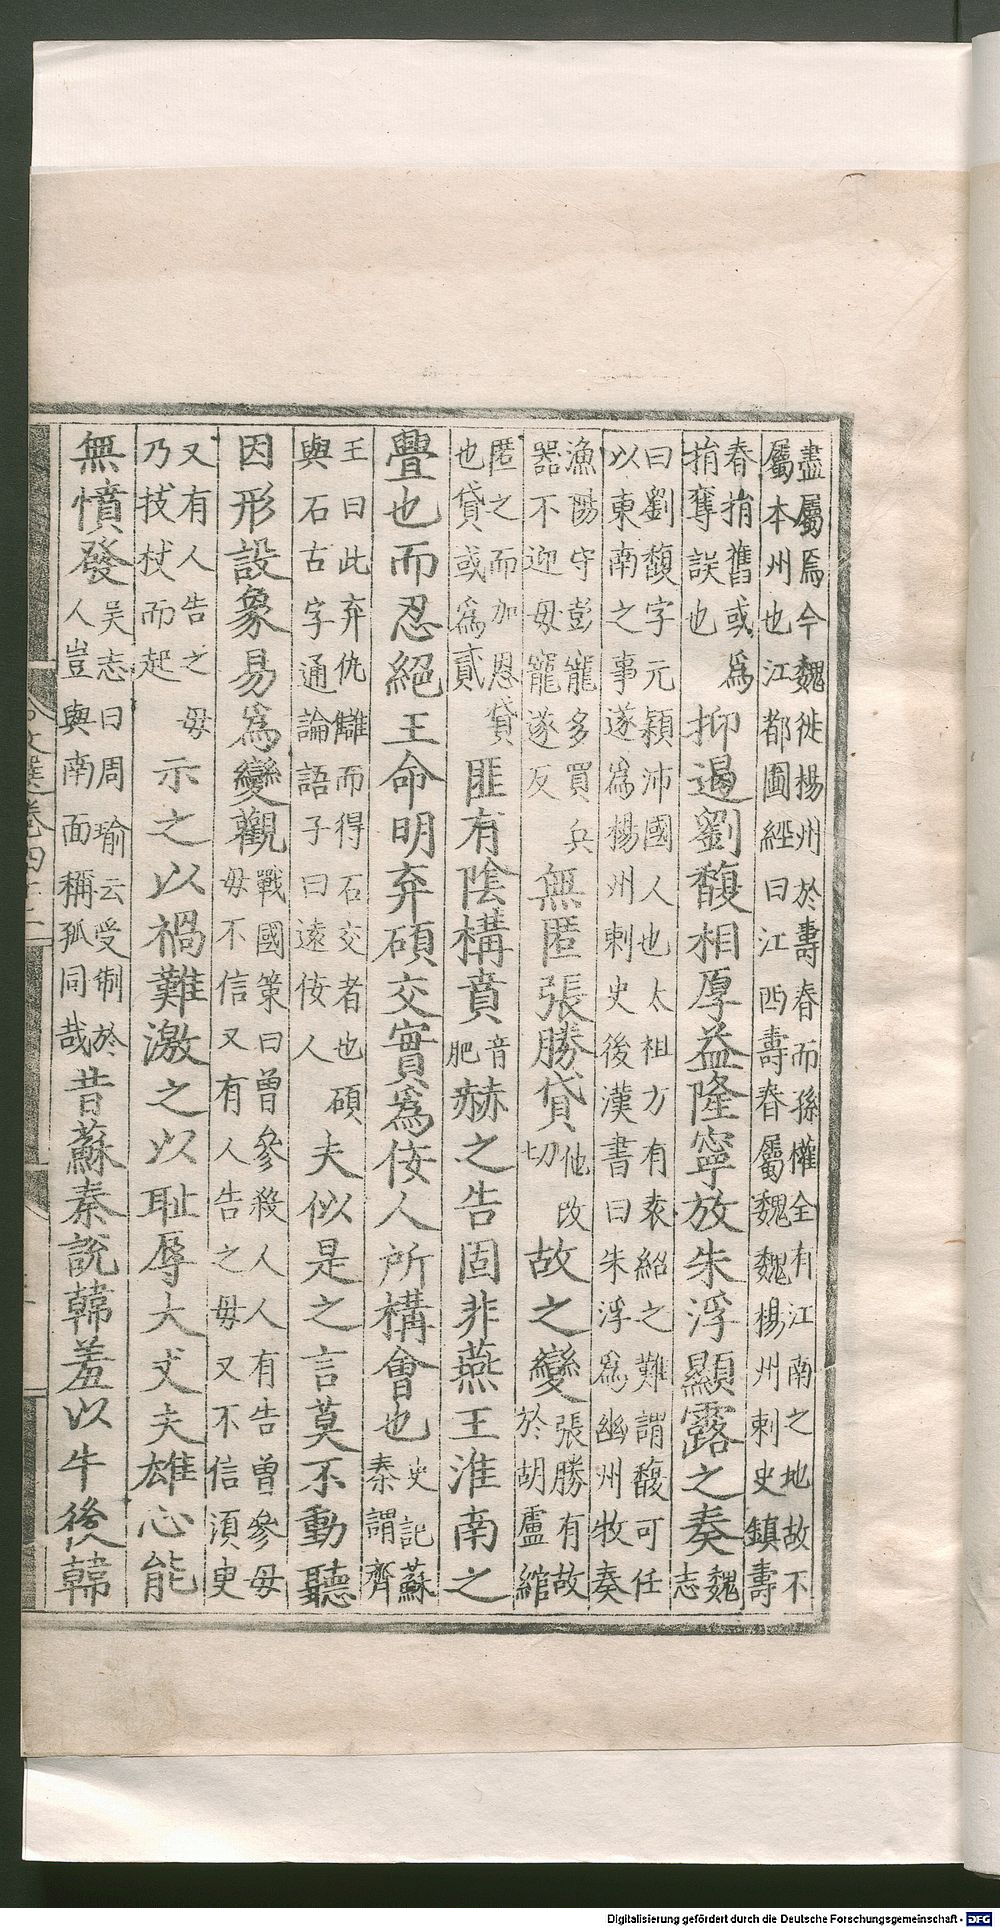 盡屬焉今魏徙楊州於壽春而孫權全有江南之地故不
屬本州也江都圖經曰江西壽春屬魏魏楊州刺史鎮壽
春捐舊或爲
捐奪誤也
抑遏劉馥相厚益隆寧放朱浮顯露之奏
魏
志
曰劉馥字元穎沛國人也太祖方有袁紹之難謂馥可任
以東南之事遂爲楊州刺史後漢書曰朱浮爲幽州牧奏
漁陽守彭寵多買兵
器不迎母寵遂反
無匿張勝貸
他改
切
故之變
張勝有故
於胡盧綰
匿之而加恩貸
也貸或爲貳
匪有陰構賁
音
肥
赫之告固非燕王淮南之
舋也而忍絕王命明弃碩交實爲佞人所構會也
史記蘇
秦謂齊
王曰此弃仇讎而得石交者也碩
與石古字通論語子曰遠佞人
夫似是之言莫不動聽
因形設象易爲變觀
戰國策曰曾參殺人人有告曾參母
母不信又有人告之母又不信須臾
又有人告之母
乃投杖而起
示之以禍難激之以耻辱大丈夫雄心能
無憤發
吴志曰周瑜云受制於
人豈與南面稱孤同哉
昔蘇秦說韓羞以牛後韓
文選卷四十二
Digitalisierung gefördert durch die Deutsche Forschungsgemeinschaft - DFG